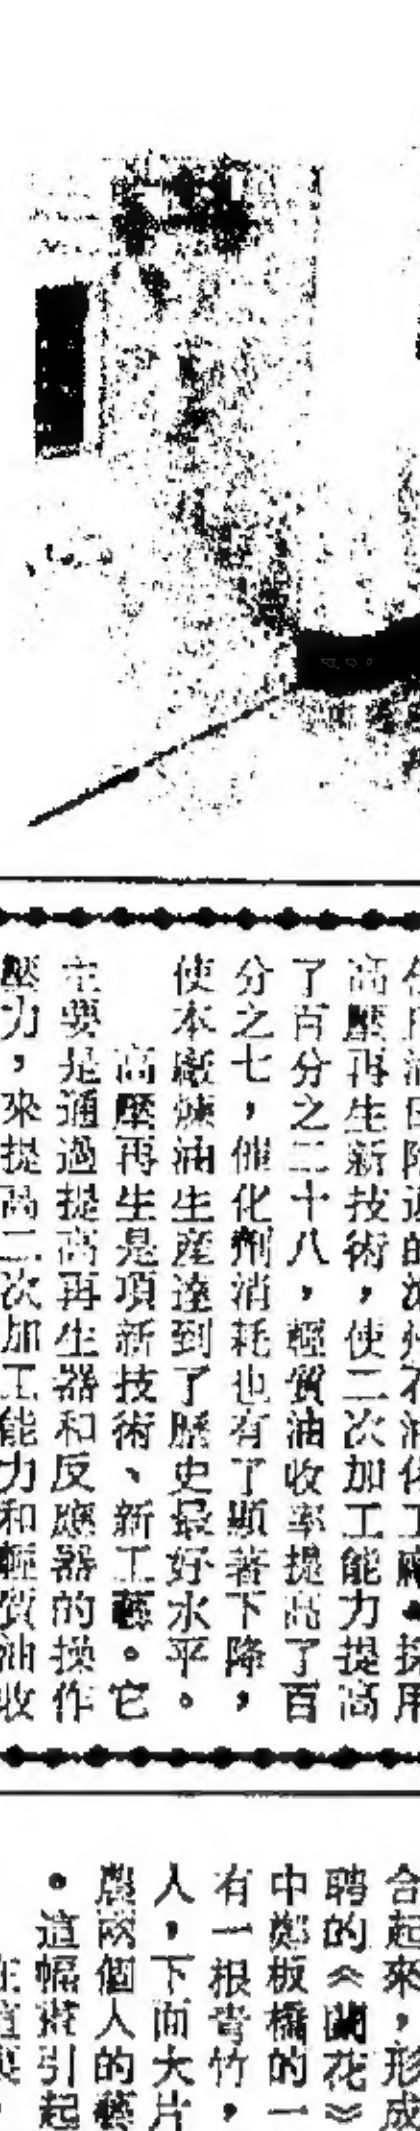 高壓再生新技術，使二次加工能力提高
了百分之二十八，輕質油收率提高了百
分之七，催化劑消耗也有了顯著下降，
使本廠煉油生產達到了歷史最好水平。
高壓再生是項新技術、新工藝。它
主要是通過提高再生器和反應器的操作
壓力，來提高二次加工能力和輕質油收
合起來，形成
聘的《蘭花》
中鄭板橋的一
有一根青竹，
人，下面大片
農兩個人的藝
。這幅畫引起